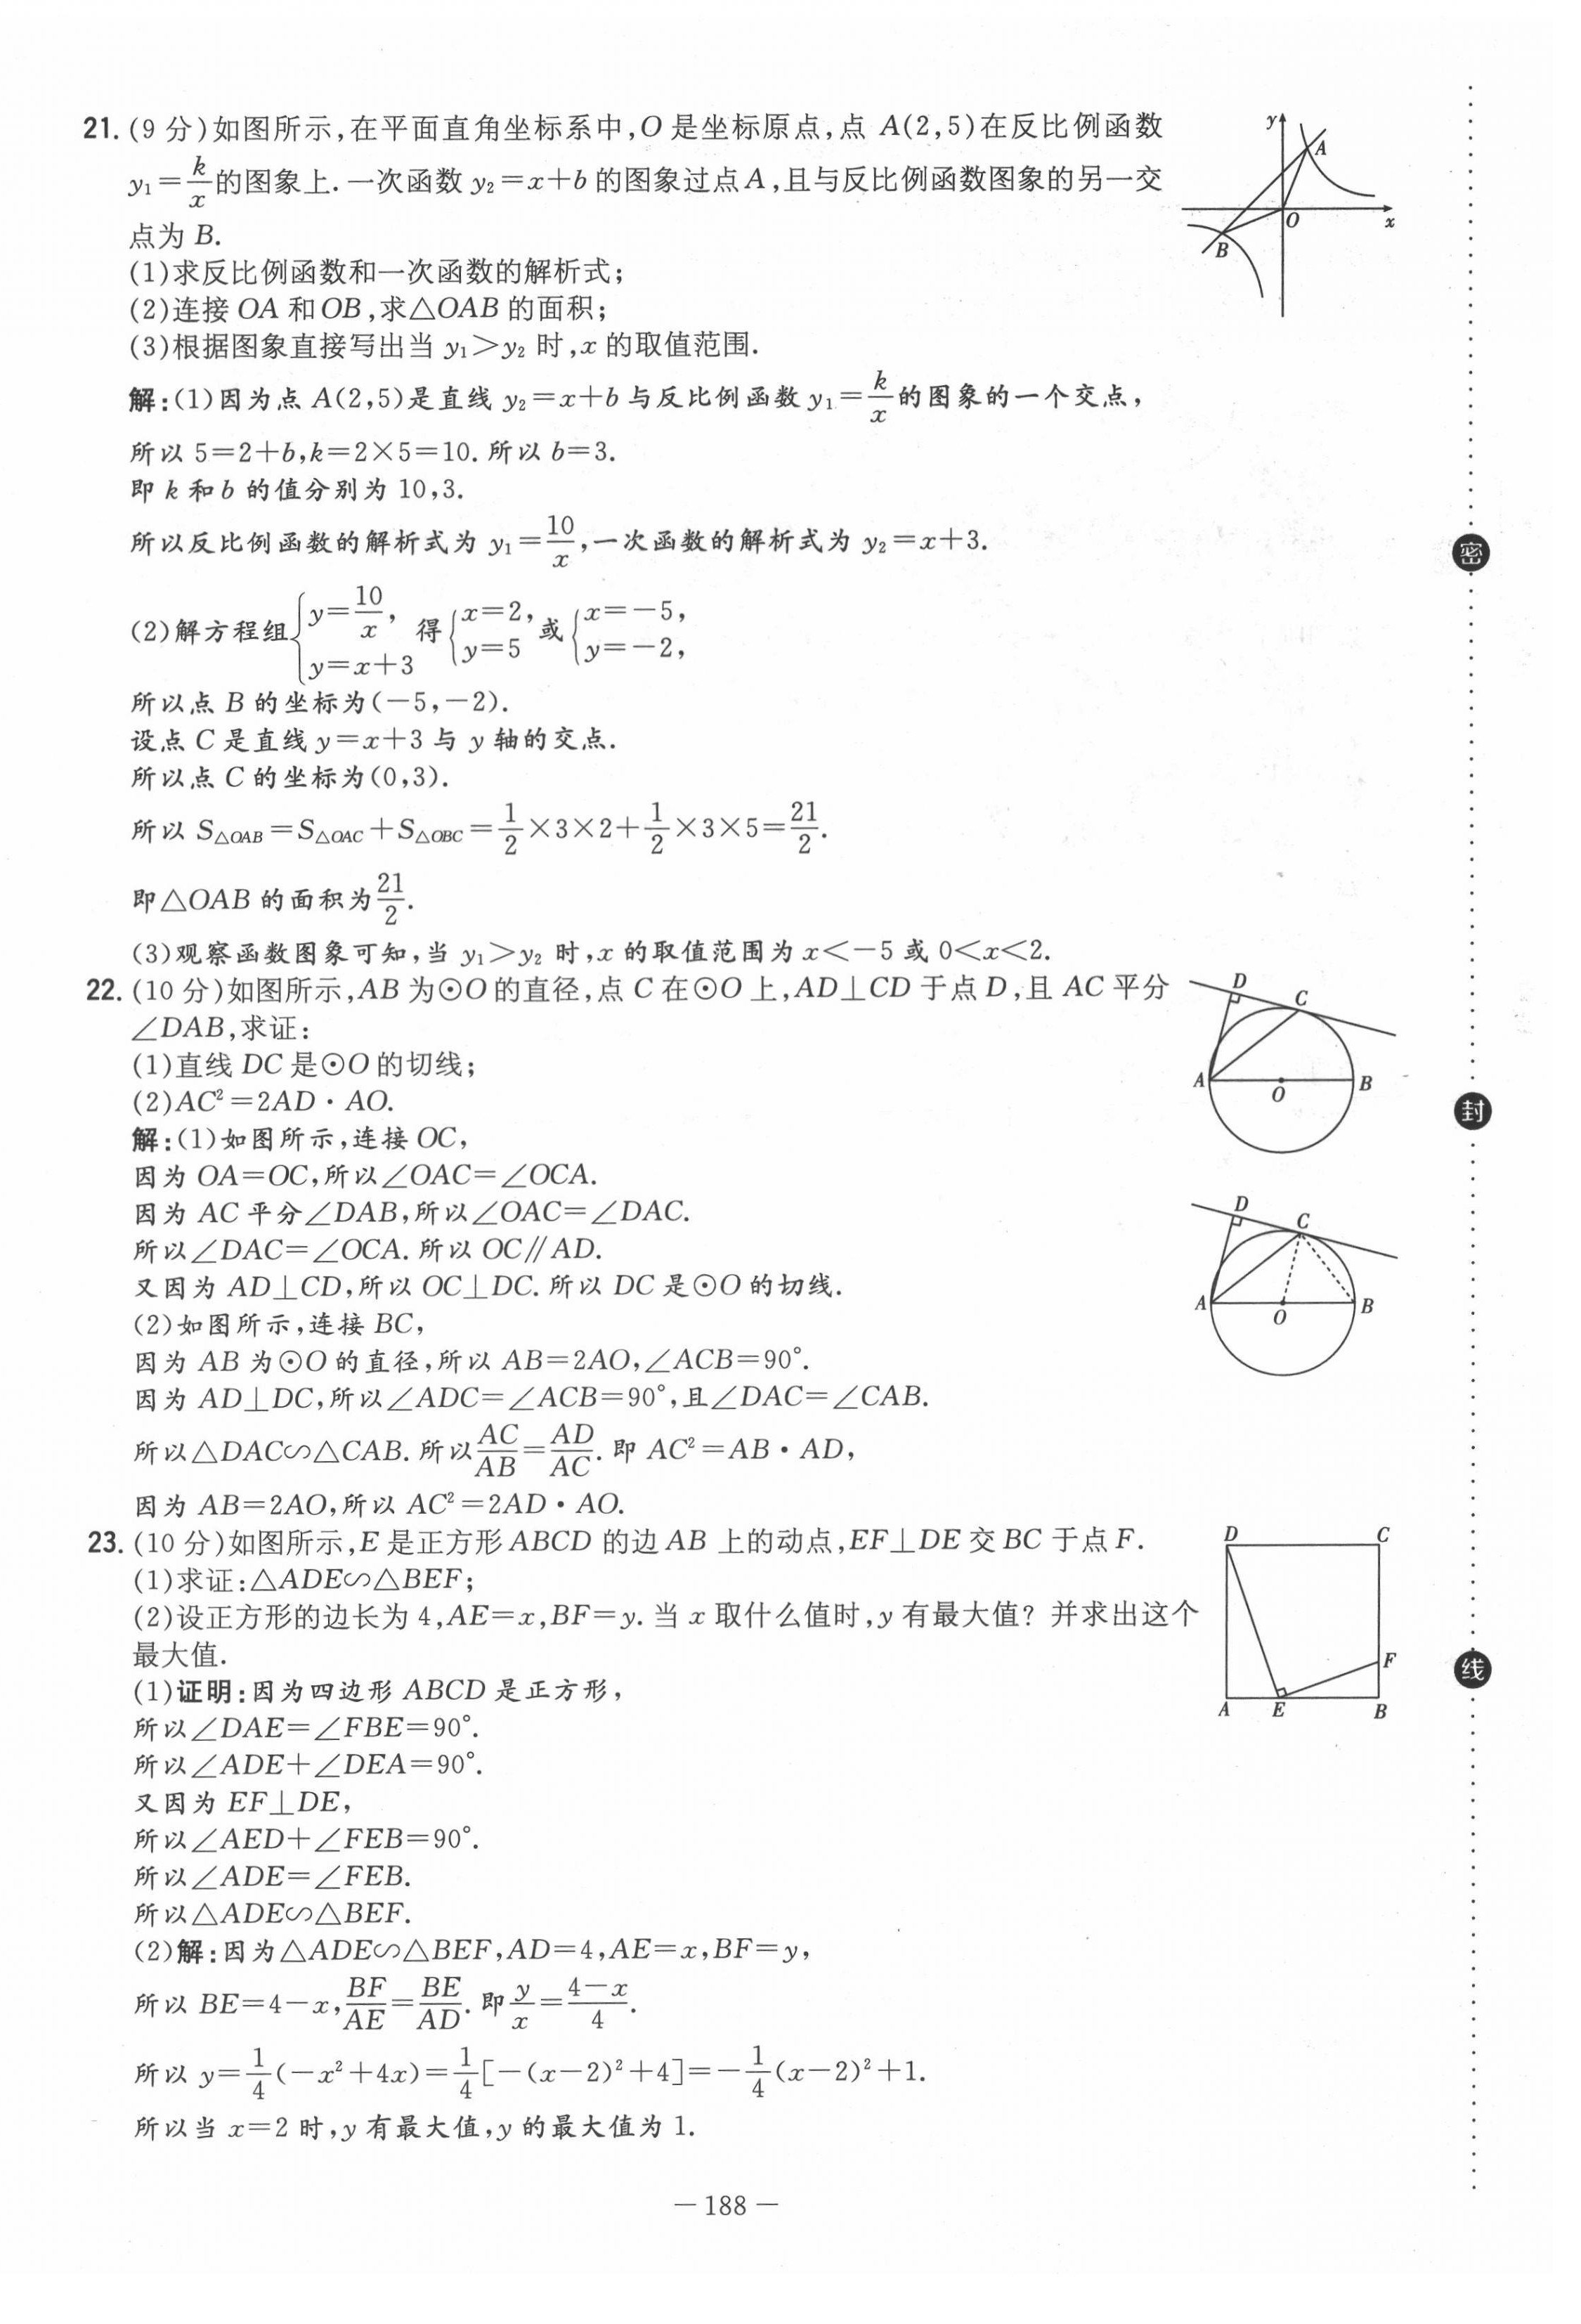 21. (9 分)如图所示,在平面直角坐标系中,O 是坐标原点,点 A(2,5)在反比例函数
y₁=k/x的图象上.一次函数 y₂=x+b 的图象过点A,且与反比例函数图象的另一交
点为 B.
(1)求反比例函数和一次函数的解析式;
(2)连接 OA 和OB,求△OAB 的面积;
(3)根据图象直接写出当 y₁>y₂ 时,x 的取值范围.
y
A
O
x
B
解:(1)因为点 A(2,5)是直线 y₂=x+b 与反比例函数 y₁=k/x的图象的一个交点,
所以 5=2+b,k=2×5=10.所以 b=3.
即 k 和 b 的值分别为 10,3.
所以反比例函数的解析式为 y₁=10/x,一次函数的解析式为 y₂=x+3.
(2)解方程组{y=10/x, y=x+3 得{x=2, y=5 或{x=-5, y=-2,
所以点 B 的坐标为(-5,-2).
设点 C 是直线 y=x+3 与 y 轴的交点.
所以点 C 的坐标为(0,3).
所以 S△OAB=S△OAC+S△OBC=1/2×3×2+1/2×3×5=21/2.
即△OAB 的面积为21/2.
(3)观察函数图象可知,当 y₁>y₂ 时,x 的取值范围为 x<-5 或 0<x<2.
22. (10 分)如图所示,AB 为⊙O 的直径,点 C 在⊙O 上,AD⊥CD 于点 D,且 AC 平分
∠DAB,求证:
(1)直线 DC 是⊙O 的切线;
(2)AC²=2AD·AO.
D
C
A
O
B
解:(1)如图所示,连接 OC,
因为 OA=OC,所以∠OAC=∠OCA.
因为 AC 平分∠DAB,所以∠OAC=∠DAC.
所以∠DAC=∠OCA.所以 OC∥AD.
又因为 AD⊥CD,所以 OC⊥DC.所以 DC 是⊙O 的切线.
D
C
A
O
B
(2)如图所示,连接 BC,
因为 AB 为⊙O 的直径,所以 AB=2AO,∠ACB=90°.
因为 AD⊥DC,所以∠ADC=∠ACB=90°,且∠DAC=∠CAB.
所以△DAC∽△CAB.所以AC/AB=AD/AC.即 AC²=AB·AD,
因为 AB=2AO,所以 AC²=2AD·AO.
23. (10 分)如图所示,E 是正方形 ABCD 的边 AB 上的动点,EF⊥DE 交 BC 于点 F.
(1)求证:△ADE∽△BEF;
(2)设正方形的边长为 4,AE=x,BF=y.当 x 取什么值时,y 有最大值? 并求出这个
最大值.
D
C
F
A
E
B
(1)证明:因为四边形 ABCD 是正方形,
所以∠DAE=∠FBE=90°.
所以∠ADE+∠DEA=90°.
又因为 EF⊥DE,
所以∠AED+∠FEB=90°.
所以∠ADE=∠FEB.
所以△ADE∽△BEF.
(2)解:因为△ADE∽△BEF,AD=4,AE=x,BF=y,
所以 BE=4-x,BF/AE=BE/AD.即y/x=(4-x)/4.
所以 y=1/4(-x²+4x)=1/4[-(x-2)²+4]=-1/4(x-2)²+1.
所以当 x=2 时,y 有最大值,y 的最大值为 1.
密
封
线
— 188 —